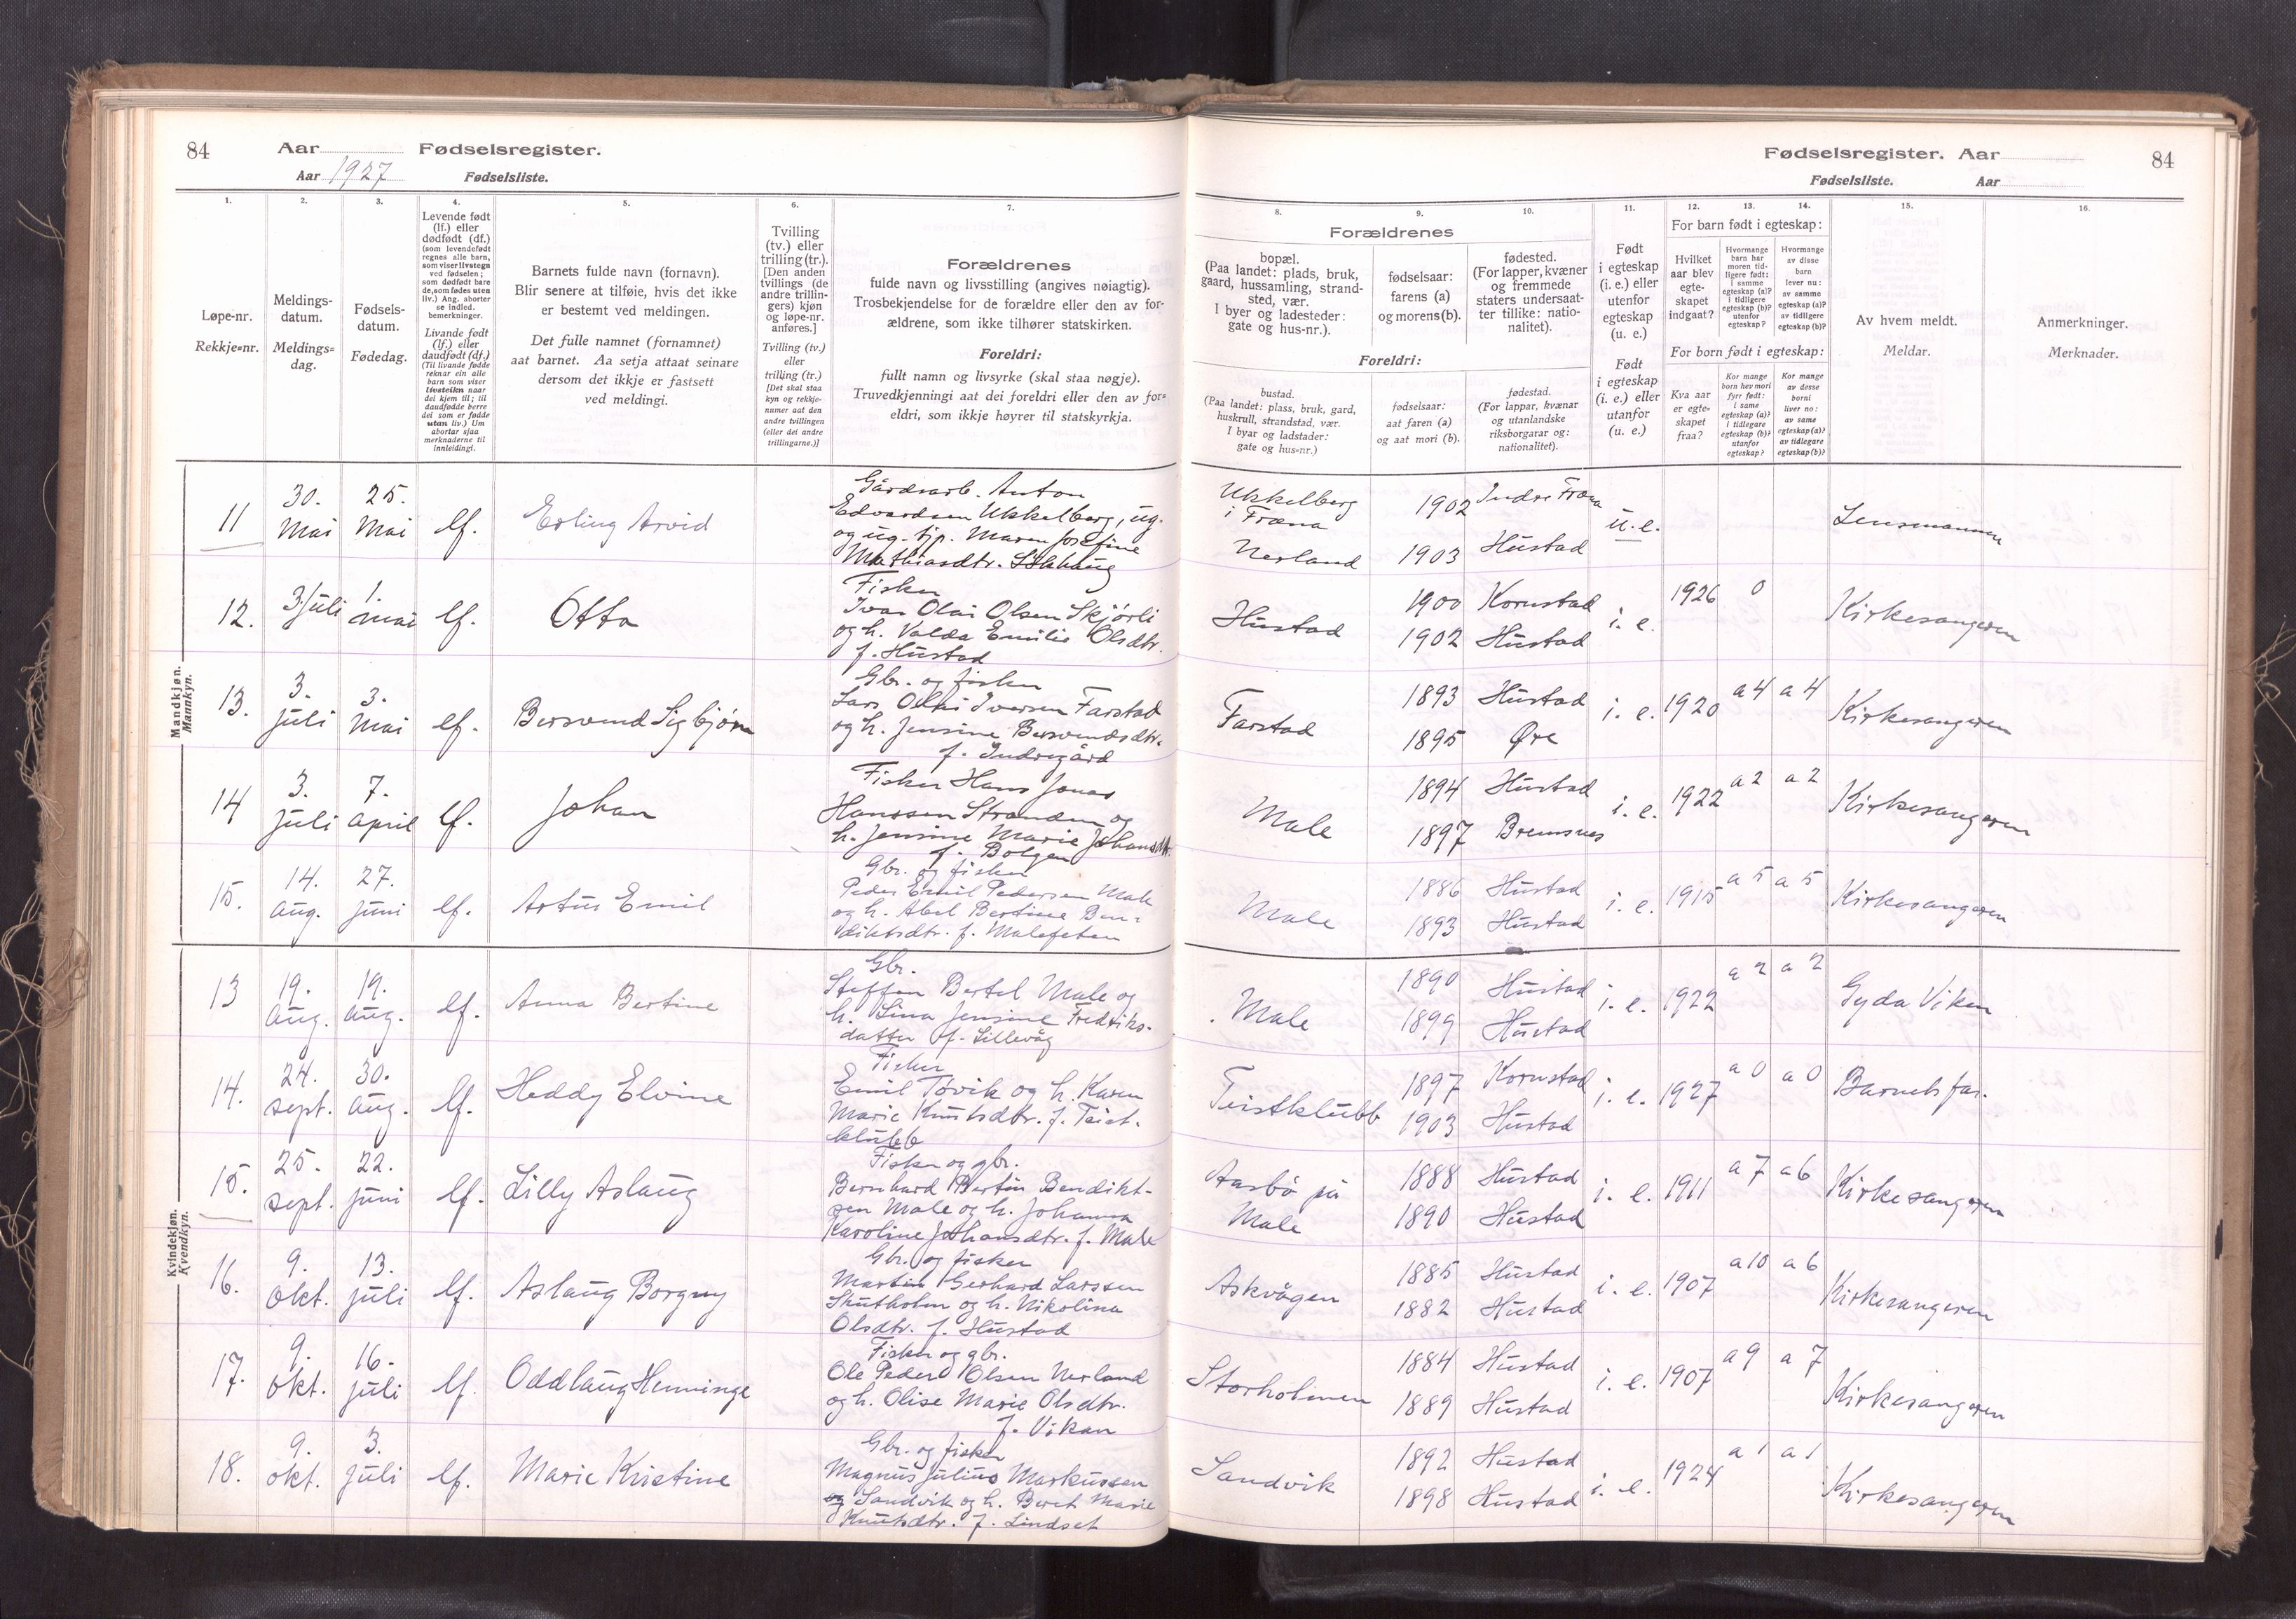 84
Aar
Fødselsregister.
Aar 1927
Fødselsliste.
1.
2.
3.
4.
5.
6.
7.
Løpe-nr.
Rekkje=nr.
Meldings-
datum.
Meldings=
dag.
Fødsels-
datum.
Fødedag.
Levende født
(lf.) eller
dødfødt (df.)
(som levendefødt
regnes alle barn,
som viser livstegn
ved fødselen;
som dødfødt bare
de, som fødes uten
liv.) Ang. aborter
se indled.
bemerkninger.
Livande født
(lf.) eller
daudfødt (df.)
(Til livande fødde
reknar ein alle
barn som viser
livsteikn naar
dei kjem til; til
daudfødde berre
dei som er fødde
utan liv.) Um
abortar sjaa
merknaderne til
innleidingi.
Barnets fulde navn (fornavn).
Blir senere at tilføie, hvis det ikke
er bestemt ved meldingen.
Det fulle namnet (fornamnet)
aat barnet. Aa setja attaat seinare
dersom det ikkje er fastsett
ved meldingi.
Tvilling
(tv.) eller
trilling (tr.).
[Den anden
tvillings (de
andre trillin-
gers) kjøn
og løpe-nr.
anføres.]
Tvilling (tv.)
eller
trilling (tr.)
[Det skal staa
kyn og rekkje-
numer aat den
andre tvillingen
(eller dei andre
trillingarne.)]
Forældrenes
fulde navn og livsstilling (angives nøiagtig).
Trosbekjendelse for de forældre eller den av for-
ældrene, som ikke tilhører statskirken.
Foreldri:
fullt namn og livsyrke (skal staa nøgje).
Truvedkjenningi aat dei foreldri eller den av for=
eldri, som ikkje høyrer til statskyrkja.
Mandkjøn.
Mannkyn.
11
30.
Mai
25.
Mai
lf.
Erling Arvid
Gårdsarb. Anton
Edvardsen Ukkelberg, ug.
og ug. tjp. Maren Josefine
Mathiasdtr.
12.
3/juli
1.
mai
lf.
Otto
Fisker
Ivar Olai Olsen Skjørli
og h. Valda Emilie Olsdtr.
f. Hustad
13.
3.
juli
3.
Mai
lf.
Bersvend Sigbjørn
Gbr. og fisker
Lars Olai Iversen Farstad
og h. Jensine Bersvendsdtr.
f. Indregård
14
3.
juli
7.
april
lf.
Johan
Fisker Hans Jonas
Hanssen Stranden og
h. Jensine Marie Johansdtr.
f. Bolgen
15.
14.
aug.
27.
juni
lf.
Artur Emil
Gbr. og fisker
Peder Emil Pedersen Male
og h. Abel Bertine Ben-
diktsdtr. f. Malefeten
Kvindekjøn.
Kvendkyn.
13
19.
aug.
19.
aug.
lf.
Anna Bertine
Gbr.
Steffen Bertel Male og
h. Lina Jensine Fredriks-
datter f. Lillevåg
14.
24.
sept.
30.
aug.
lf.
Heddy Elvine
Fisker
Emil Tøvik og h. Karen
Marie Knutsdtr. f. Teist-
klubb
15.
25.
sept.
22.
juni
lf.
Lilly Aslaug
Fisker og gbr.
Bernhard Martin Bendikt-
sen Male og h. Johanna
Karoline Johansdtr. f. Male
16.
9.
okt.
13.
juli
lf.
Aslaug Borgny
Gbr. og fisker
Martin Gerhard Larssen
Skutholm og h. Nikolina
Olsdtr. f. Hustad
17.
9.
okt.
16.
juli
lf.
Oddlaug Henninge
Fisker og gbr.
Ole Peder Olsen Nerland
og h. Olise Marie Olsdtr.
f. Vikan
18.
9.
okt.
3.
juli
lf.
Marie Kristine
Gbr. og fisker
Magnus Julius Markussen
og Sandvik og h. Beret Marie
Knutsdtr. f. Lindset
Fødselsregister. Aar
84
Fødselsliste.
Aar
8.
9.
10.
11.
12.
13.
14.
15.
16.
Forældrenes
bopæl.
(Paa landet: plads, bruk,
gaard, hussamling, strand-
sted, vær.
I byer og ladesteder:
gate og hus-nr.).
fødselsaar:
farens (a)
og morens (b).
fødested.
(For lapper, kvæner
og fremmede
staters undersaat-
ter tillike: natio-
nalitet).
Foreldri:
bustad.
(Paa landet: plass, bruk, gard,
huskrull, strandstad, vær.
I byar og ladstader:
gate og hus=nr.)
fødselsaar:
aat faren (a)
og aat mori (b).
fødestad.
(For lappar, kvænar
og utanlandske
riksborgarar og:
nationalitet).
Født
i egteskap
(i. e.) eller
utenfor
egteskap
(u. e.)
Født
i egteskap
(i. e.) eller
utanfor
(u. e.)
For barn født i egteskap:
Hvilket
aar blev
egte-
skapet
indgaat?
Hvormange
barn har
moren tid-
ligere født:
i samme
egteskap (a)?
i tidligere
egteskap (b)?
utenfor
egteskap?
Hvormange
av disse
barn
lever nu:
av samme
egteskap (a)?
av tidligere
egteskap (b)?
For born født i egteskap:
Kva aar
er egte-
skapet
fraa?
Kor mange
born hev mori
fyrr født:
i same
egteskap (a)?
i tidlegare
egteskap (b)?
utanfor
egteskap?
Kor mange
av desse
borni
liver no:
av same
egteskap (a)?
av tidlegare
egteskap (b)?
Av hvem meldt.
Meldar.
Anmerkninger.
Merknader.
Ukkelberg
i Fræna
Nerland
1902
1903
Indre Fræna
Hustad
u. e.
Lensmannen
Hustad
1900
1902
Kornstad
Hustad
i. e.
1926
0
Kirkesangeren
Farstad
1893
1895
Hustad
Øre
i. e.
1920
a 4
a 4
Kirkesangeren
Male
1894
1897
Hustad
Bremsnes
i. e.
1922
a 2
a 2
Kirkesangeren
Male
1886
1893
Hustad
Hustad
i. e.
1915
a 5
a 5
Kirkesangeren
Male
1890
1899
Hustad
Hustad
i. e.
1922
a 2
a 2
Gyda Viken
Teistklubb
1897
1903
Kornstad
Hustad
i. e.
1927
a 0
a 0
Barnets far.
Aasbø på
Male
1888
1890
Hustad
Hustad
i. e.
1911
a 7
a 6
Kirkesangeren
Askvågen
1885
1882
Hustad
Hustad
i. e.
1907
a 10
a 6
Kirkesangeren
Storholmen
1884
1889
Hustad
Hustad
i. e.
1907
a 9
a 7
Kirkesangeren
Sandvik
1892
1898
Hustad
Hustad
i. e.
1924
a 1
a 1
Kirkesangeren